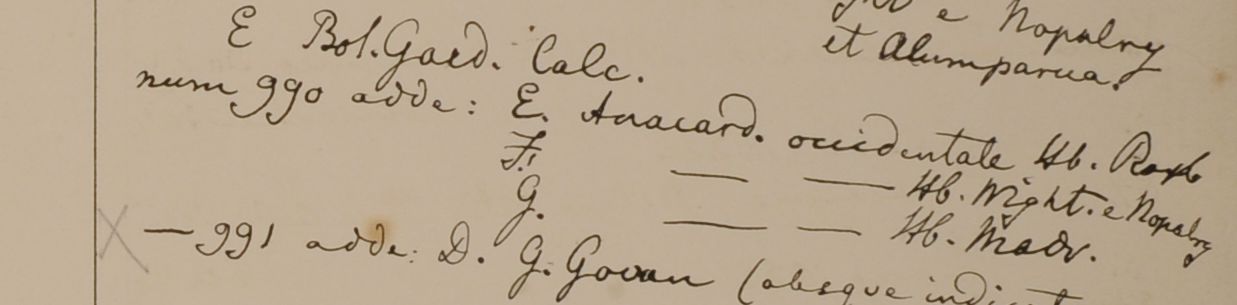 e Nopalry
et Alumparua.
E Bot. Gard. Calc.
num 990 adde: E. Anacard. occidentale Hb. Roxb
F. — — Hb. Wight. e Nopalry
G. — — Hb. Madr.
— 991 adde: D. G. Govan (absque indicat